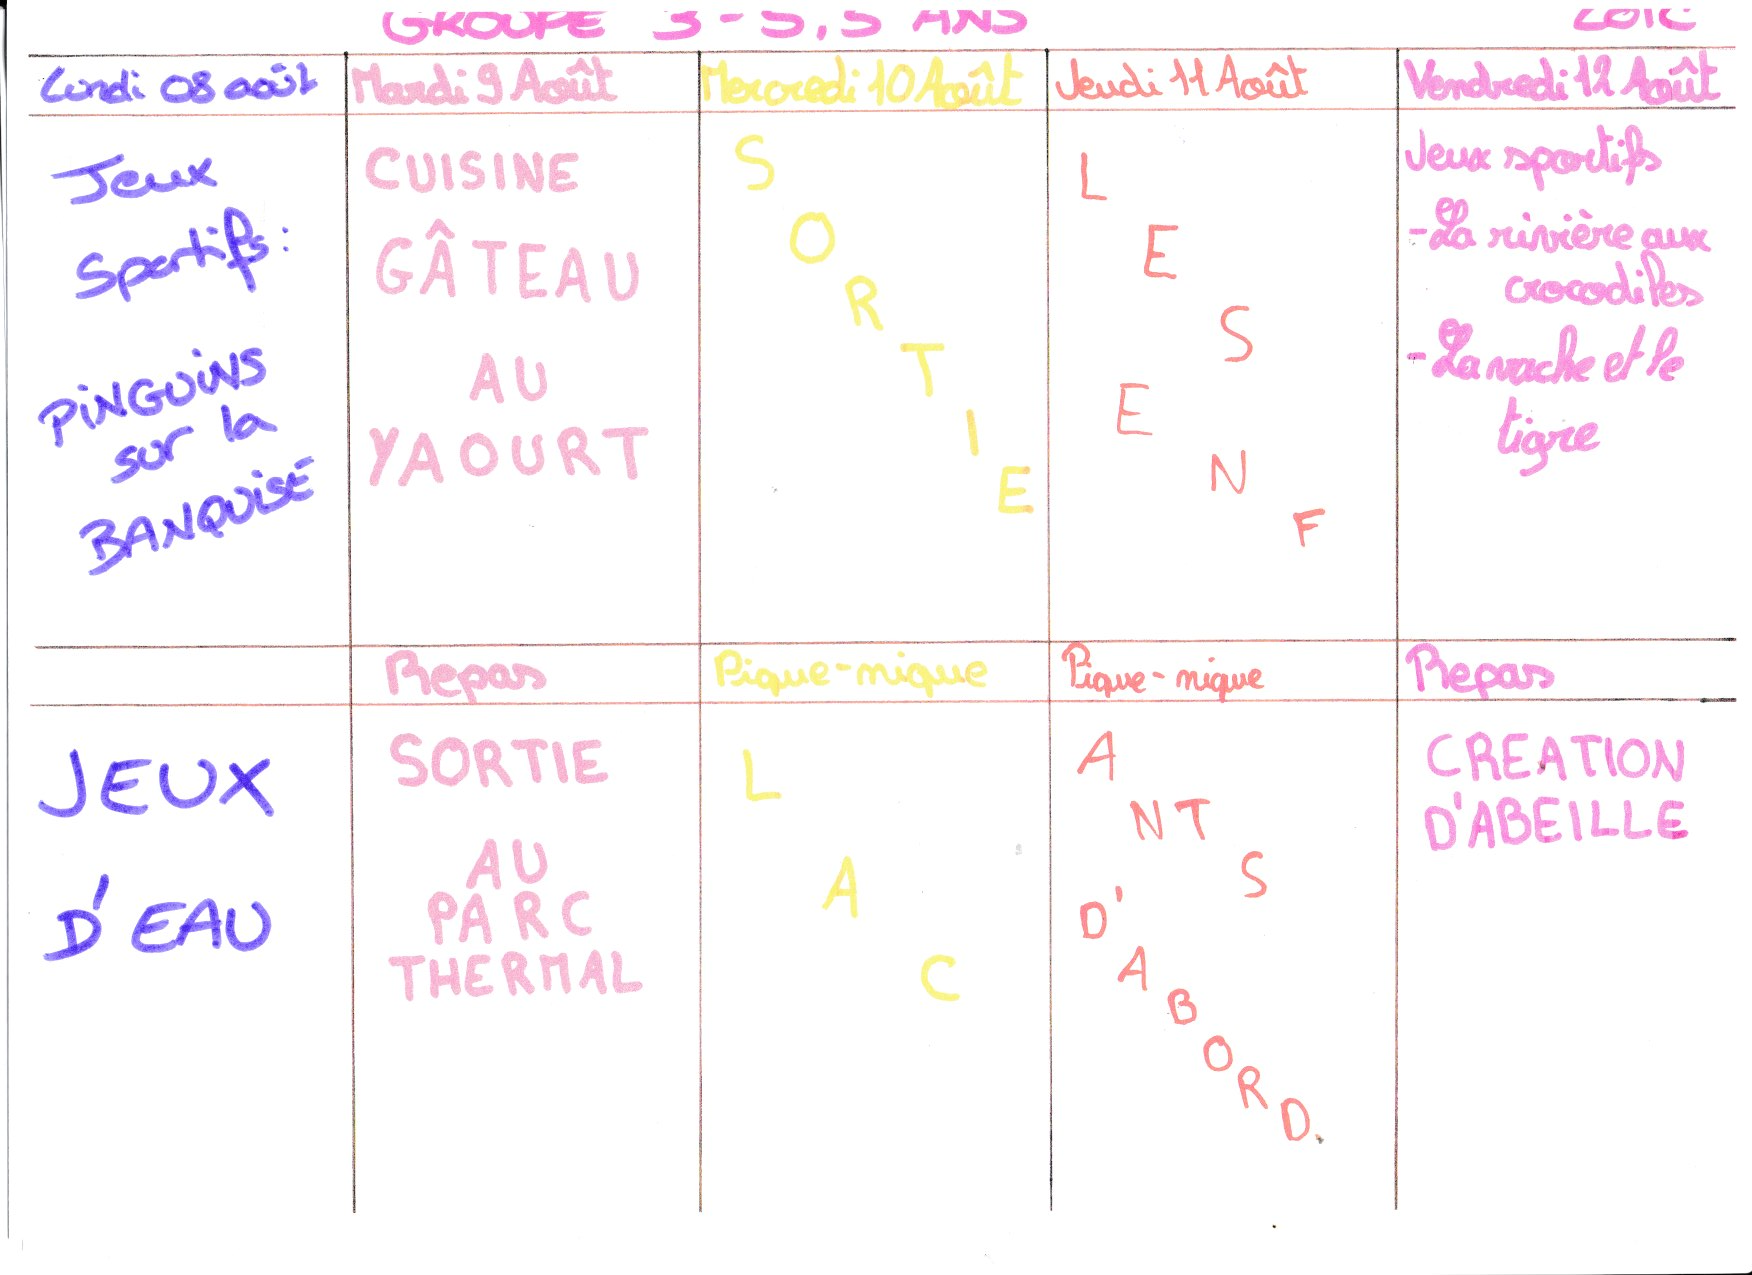 GROUPE 3-5,5 ANS
LOIC
Lundi 08 août
Mardi 9 Août
Mercredi 10 Août
Jeudi 11 Août
Vendredi 12 Août
Jeux
Sportifs:
PiNGUiNS
sur la
BANQUiSE
CUISINE
GÂTEAU
AU
YAOURT
S
O
R
T
I
E
L
E
S
E
N
F
Jeux sportifs
-La rivière aux
crocodiles
-La vache et le
tigre
Repas
Pique-nique
Pique-nique
Repas
JEUX
D'EAU
SORTIE
AU
PARC
THERMAL
L
A
C
A
NT
S
D'
A
B
O
R
D.
CREATION
D'ABEILLE